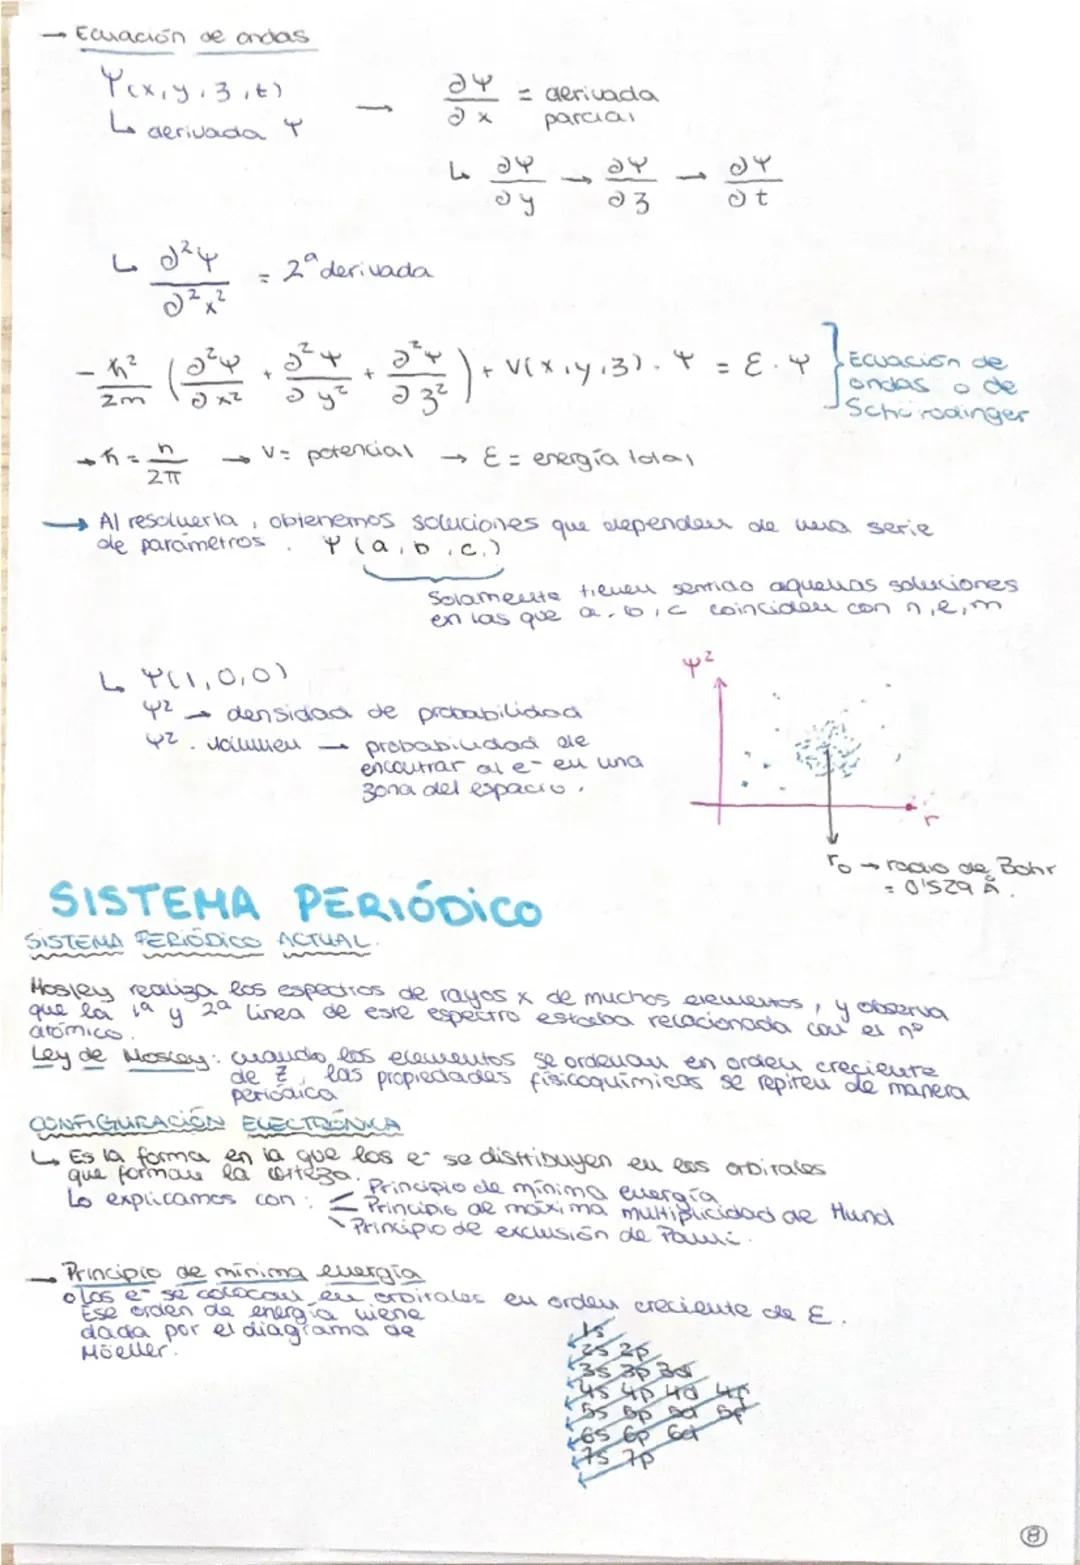 → Ecuación de ondas
Ψ(x,y,z,t) → ∂Ψ/∂x = derivada parcial
↳ derivada Ψ
↳ ∂Ψ/∂y → ∂Ψ/∂z → ∂Ψ/∂t
↳ ∂²Ψ/∂²x² = 2ª derivada
- ħ²/2m (∂²Ψ/∂x² + ∂²Ψ/∂y² + ∂²Ψ/∂z²) + V(x,y,z). Ψ = E.Ψ } Ecuación de ondas o de Schürodinger
→ ħ = h/2π → V= potencial → E = energía total
→ Al resolverla, obtenemos soluciones que dependen de una serie
de parámetros. Ψ(a,b,c,)
Solamente tienen sentido aquellas soluciones
en las que a,b,c coinciden con n,l,m
↳ Ψ(1,0,0)
Ψ² → densidad de probabilidad
Ψ². volumen → probabilidad de
encontrar al e⁻ en una
zona del espacio.
Ψ²
r
r₀ → radio de Bohr
= 0'529 Å.
SISTEMA PERIÓDICO
SISTEMA PERIÓDICO ACTUAL.
Mosley realiza los espectros de rayos x de muchos elementos, y observa
que la 1ª y 2ª línea de este espectro estaba relacionada con el nº
atómico.
Ley de Mosley: cuando los elementos se ordenan en orden creciente
de Z, las propiedades fisicoquímicas se repiten de manera
periódica
CONFIGURACIÓN ELECTRÓNICA
↳ Es la forma en la que los e⁻ se distribuyen en los orbitales
que forman la corteza.
Lo explicamos con: Principio de mínima energía
Principio de máxima multiplicidad de Hund
Principio de exclusión de Pauli.
→ Principio de mínima energía
o los e⁻ se colocan en orbitales en orden creciente de E.
Ese orden de energía viene
dada por el diagrama de
Möeller.
1s
2s 2p
3s 3p 3d
4s 4p 4d 4f
5s 5p 5d 5f
6s 6p 6d
7s 7p
8